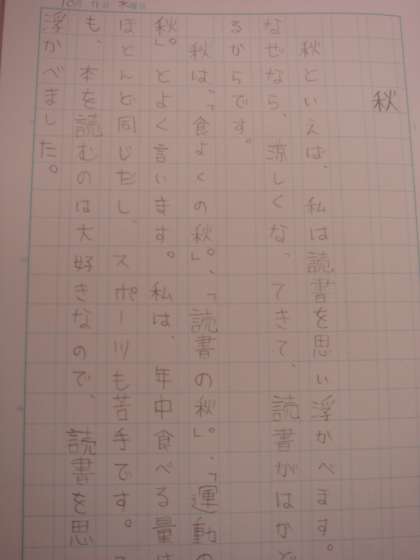 秋
秋といえば、私は読書を思い浮かべます。
なぜなら、涼しくなってきて、読書がはかど
るからです。
秋は、「食よくの秋」。、「読書の秋」。、「運動の
秋」。とよく言います。私は、年中食べる量は
ほとんど同じだし、スポーツも苦手です。
も、本を読むのは大好きなので、読書を思
浮かべました。